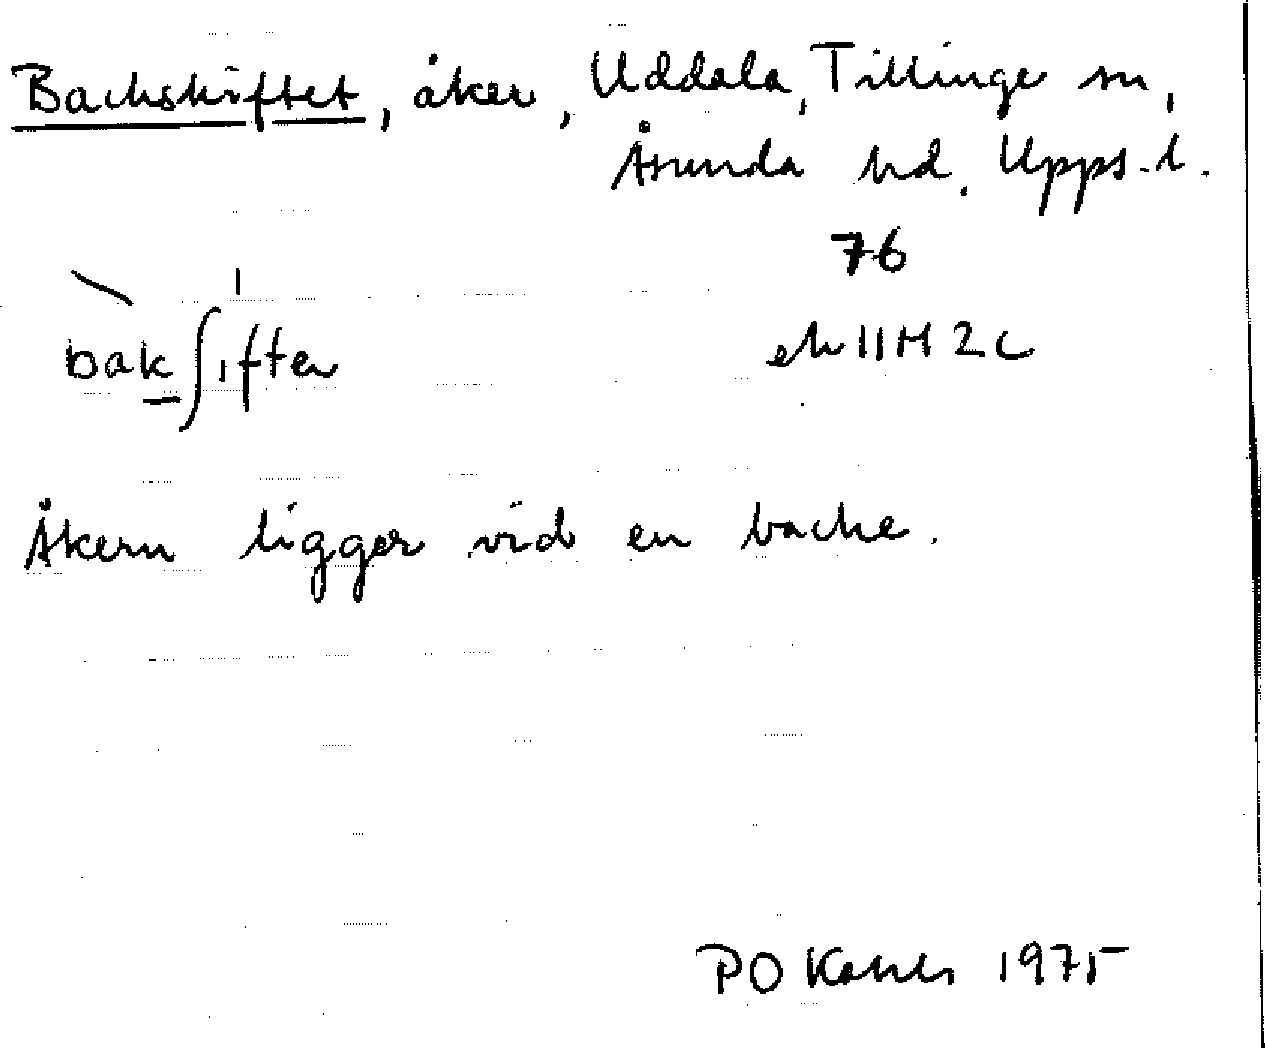 Backskiftet, åker, Uddala, Tillinge sn,
Åsunda hd. Upps.l.
76
bakʃiften
ek 11H 2c
Åkern ligger vid en backe.
PO 1975